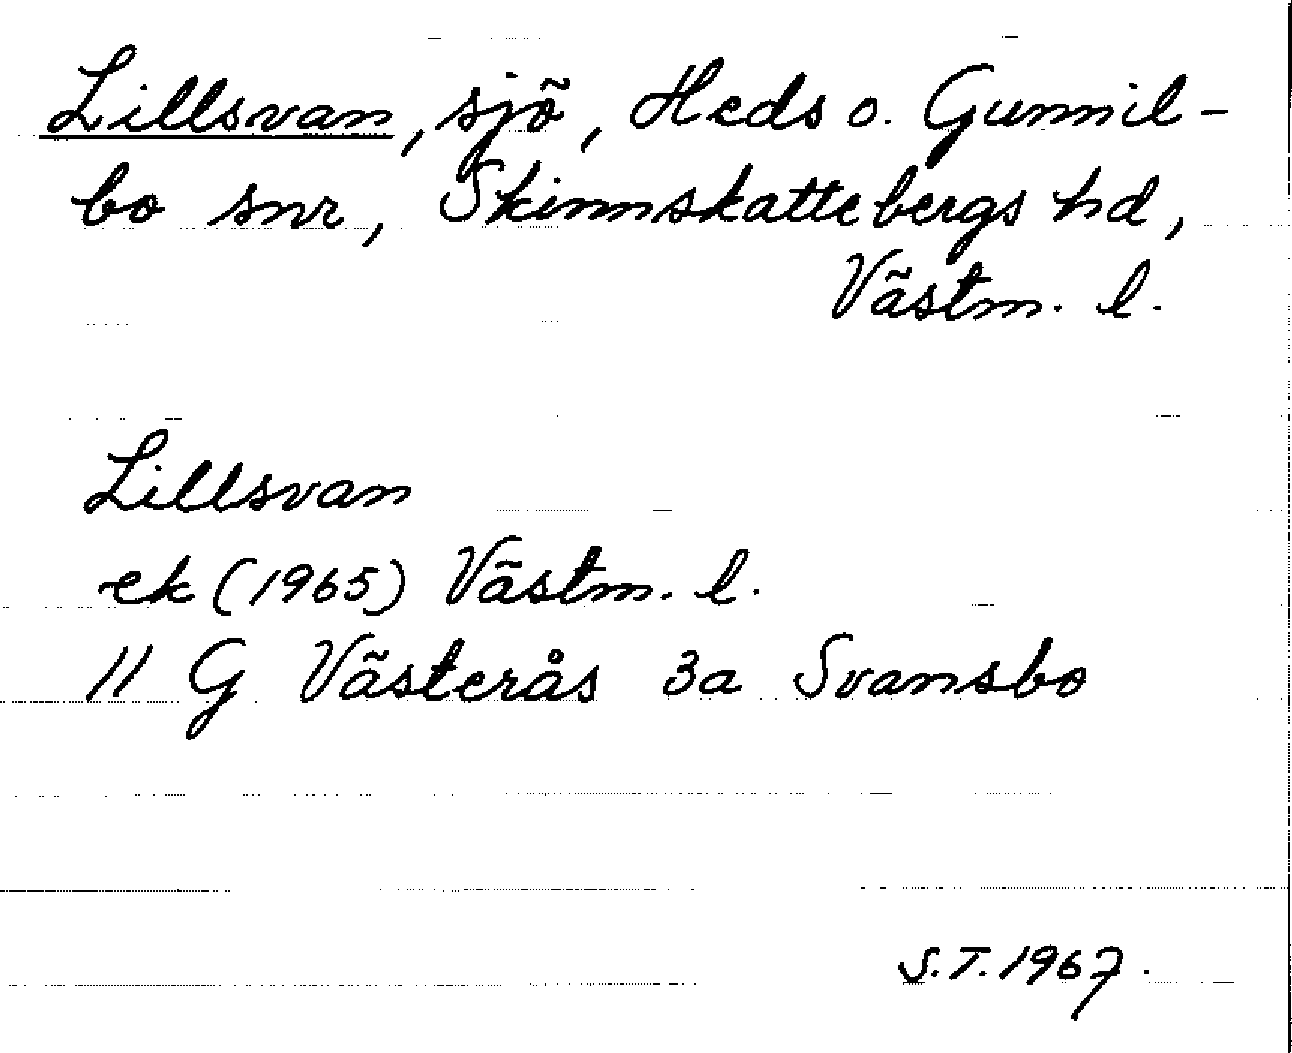 Lillsvan, sjö, Heds o. Gunnil-
bo snr, Skinnskattebergs hd,
Västm. l.
Lillsvan
ek (1965) Västm. l.
11 G Västerås 3a Svansbo
S.T. 1967.